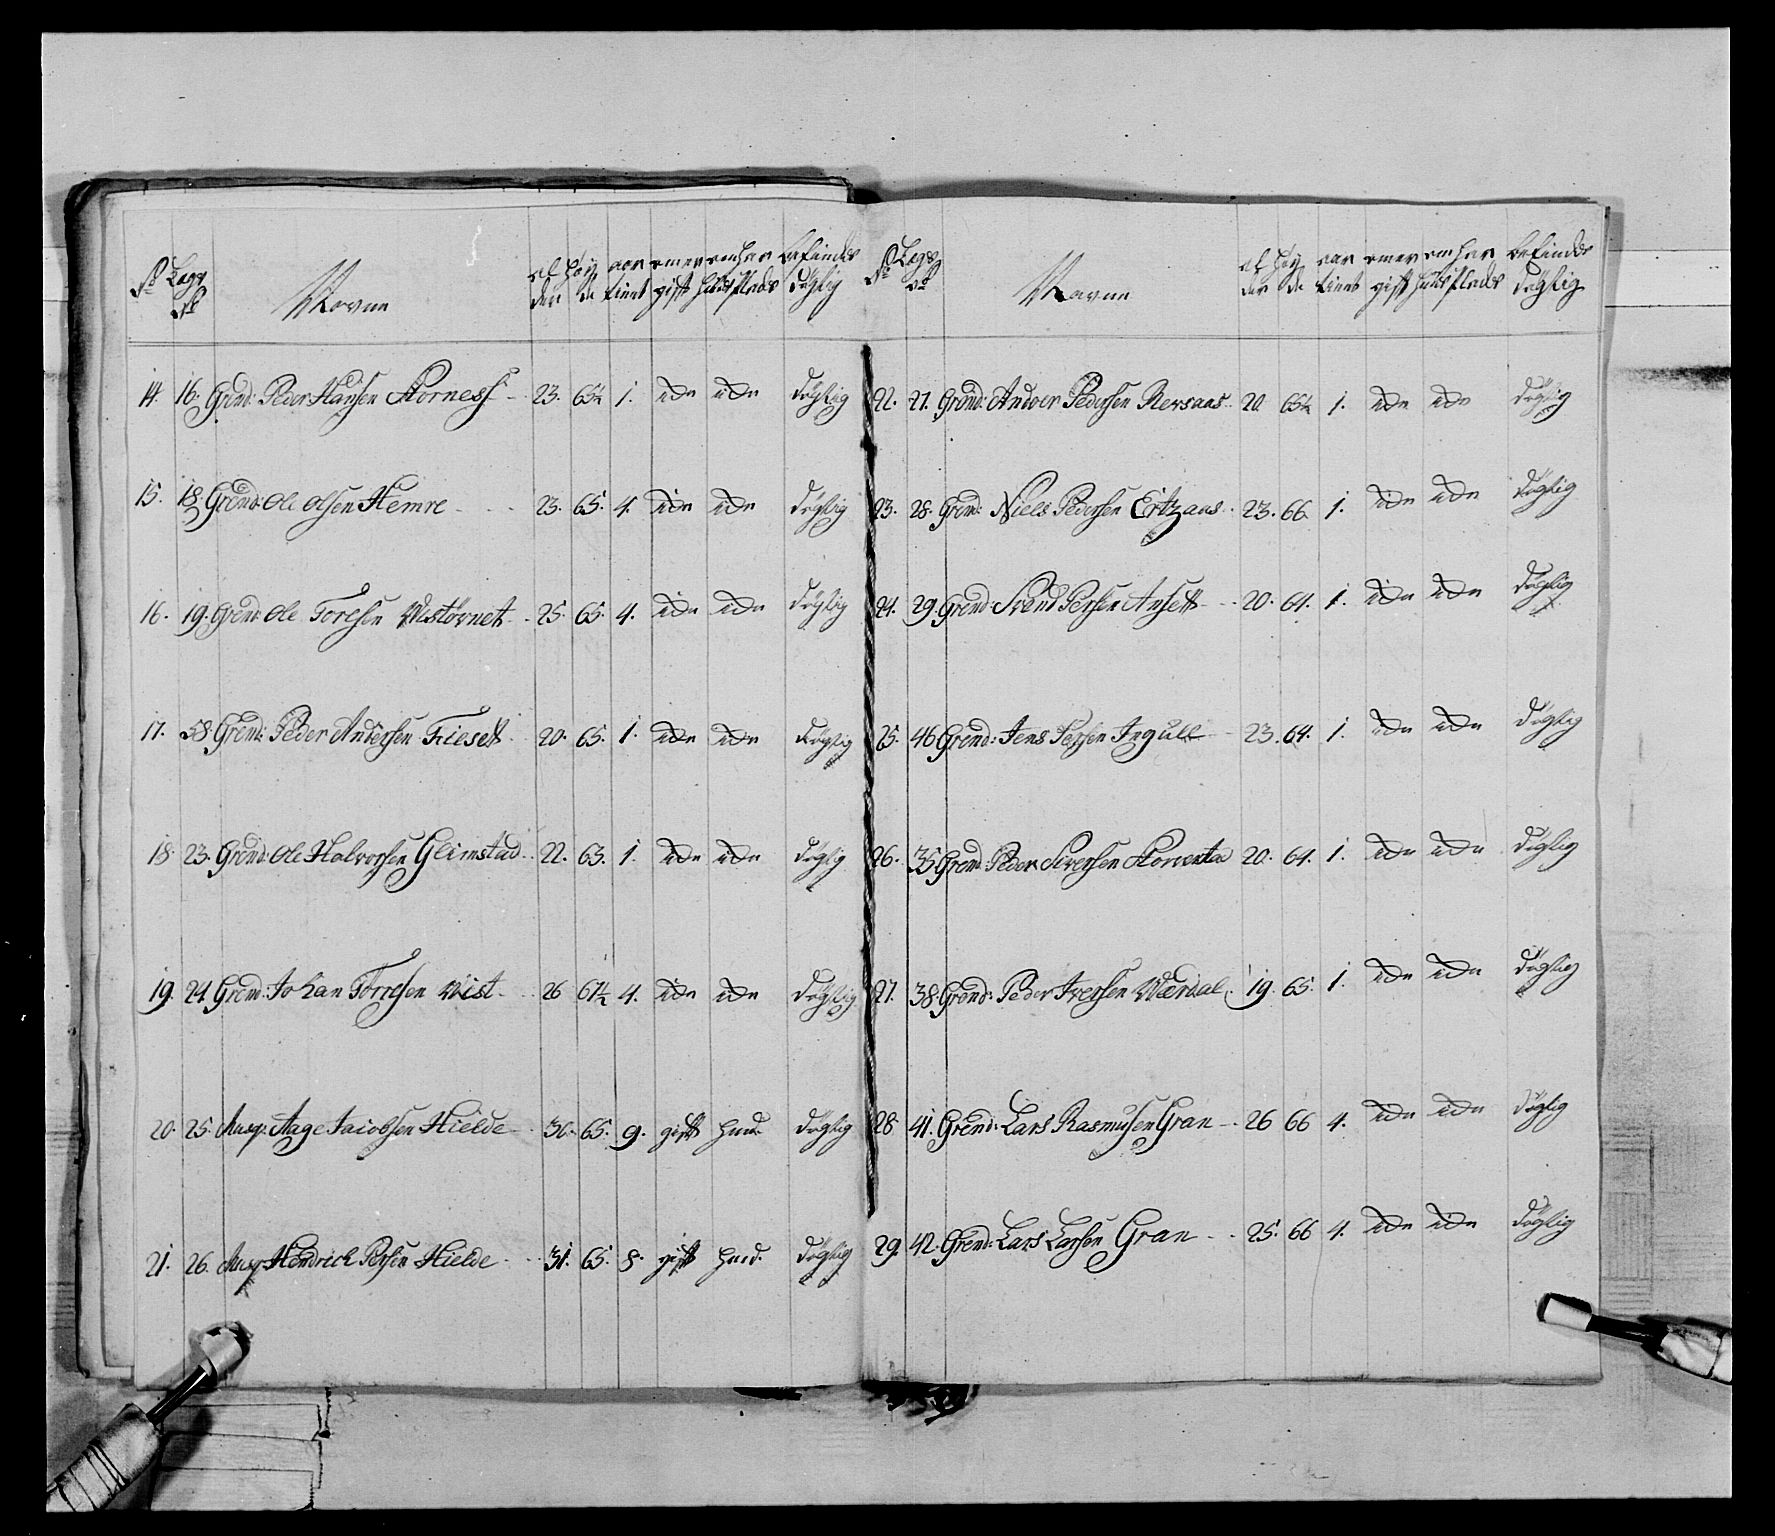 No Legs No Navne alder høyde aar tient om er gift om har huusplads befindes dygtig
14. 16. Grend: Peder Hansen Storness 23. 65½ 1. idn idn dygtig
15. 18. Grend: Ole Olsen Hemre 23. 65. 4. idn idn dygtig
16. 19. Grend: Ole Toresen Wistørnet 25. 65. 4. idn idn dygtig
17. 58. Grend: Peder Andersen Trieset 20. 65. 1. idn idn dygtig
18. 23. Grend: Ole Halvorsen Glimstad 22. 63. 1. idn idn dygtig
19. 24. Grend: Johan Torresen Wist 26 67½ 4. idn idn dygtig
20. 25. Musq: Aage Jacobsen Hielde 30. 65. 9. gift huus dygtig
21. 26. Musq: Hendrich Persen Hielde 31. 65. 8. gift dygtig
No Legs No Navne alder høy de aar tient om er gift om har huusplads befindes dygtig
22. 27. Grend: Andor Pedersen Rersaas 20. 65½ 1. idn idn dygtig
23. 28. Grend: Niels Pedersen Ertzaas 23. 66 1. idn idn dygtig
24. 29. Grend: Svend Persen Ansett 20. 64. 1. idn idn dygtig
25. 46 Grend: Jens Persen Ingull 23. 64. 1. idn idn dygtig
26. 35 Grend: Peder Siversen 20. 64. 1. idn idn dygtig
27. 38. Grend: Peder Iversen Wærdal 19. 65. 1. idn idn dygtig
28. 41. Grend: Lars Rasmusen Gran 26 66 4. idn idn dygtig
29. 42. Grend: Lars Larsen Gran 25. 66 4. idn idn dygtig